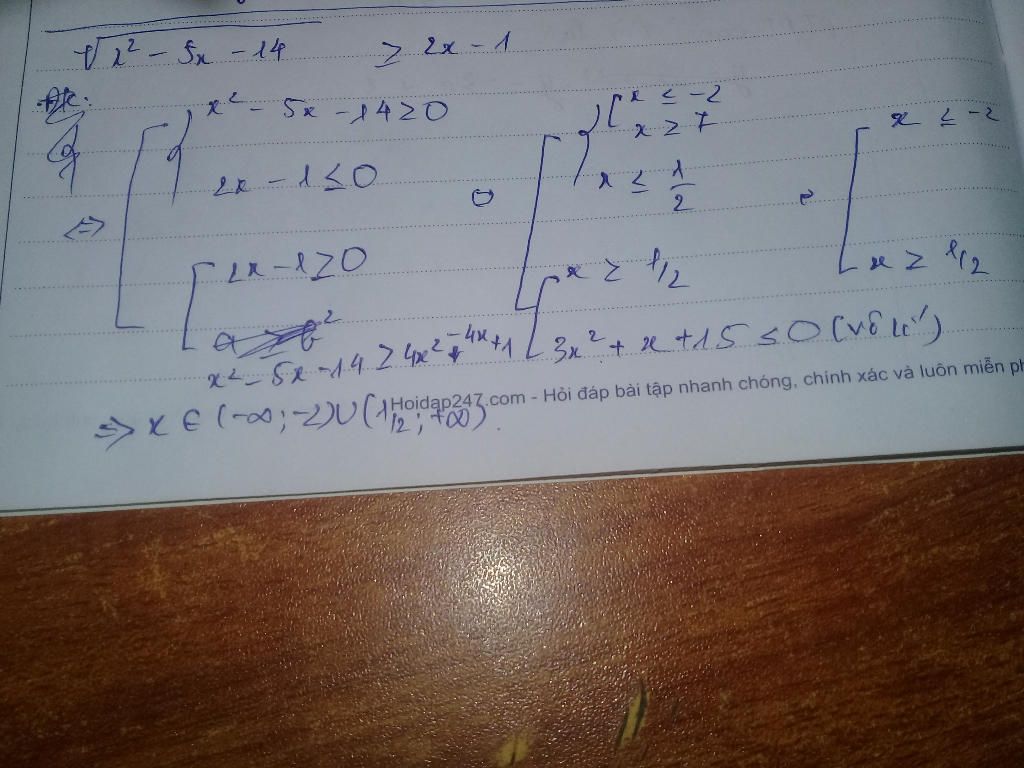 √x² - 5x - 14 ≥ 2x - 1
x² - 5x - 14 ≥ 0
2x - 1 ≤ 0
⇔
2x - 1 ≥ 0
x² - 5x - 14 ≥ 4x² - 4x + 1
x ≤ -2
x ≥ 7
x ≤ 1/2
x ≥ 1/2
3x² + x + 15 ≤ 0 (vô lí)
x ≤ -2
x ≥ 1/2
⇒ x ∈ (-∞; -2) ∪ (1/2; +∞).
Hoidap247.com - Hỏi đáp bài tập nhanh chóng, chính xác và luôn miễn ph